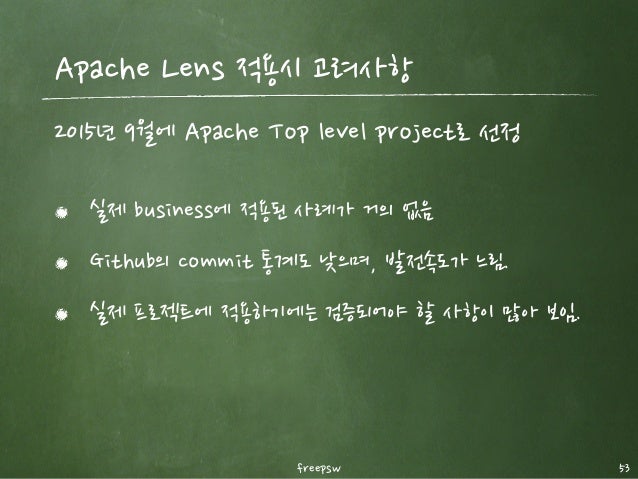 Apache Lens 적용시 고려사항
2015년 9월에 Apache Top level project로 선정
실제 business에 적용된 사례가 거의 없음
Github의 commit 통계도 낮으며, 발전속도가 느림.
실제 프로젝트에 적용하기에는 검증되어야 할 사항이 많아 보임.
freepsw
53